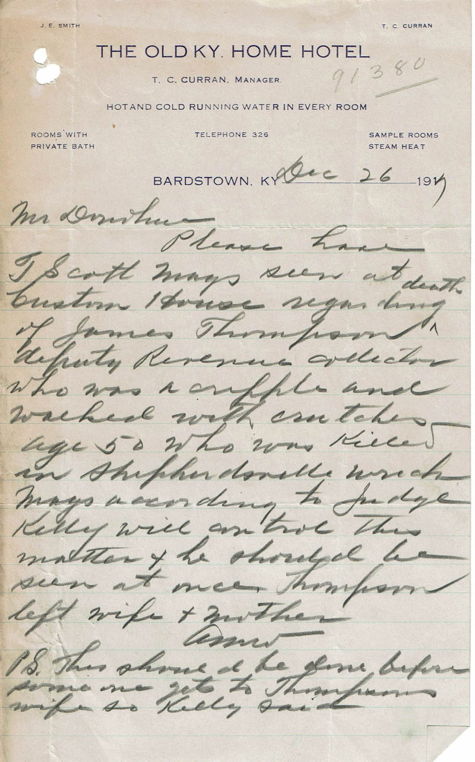 J. E. SMITH
T. C. CURRAN
THE OLD KY. HOME HOTEL
T. C. CURRAN, MANAGER.
91380
HOT AND COLD RUNNING WATER IN EVERY ROOM
ROOMS WITH
PRIVATE BATH
TELEPHONE 326
SAMPLE ROOMS
STEAM HEAT
BARDSTOWN, KY Dec 26 1917
Mr Donohue
Please have
T Scott Mays seen at
Custom House regarding death
of James Thompson
deputy Revenue collector
who was a cripple and
walked with crutches
age 50 who was Killed
in Shepherdsville wreck
Mays according to Judge
Kelly will control this
matter & he should be
seen at once Thompson
left wife & mother
PS. This should be done before
some one gets to Thompsons
wife so Kelly said